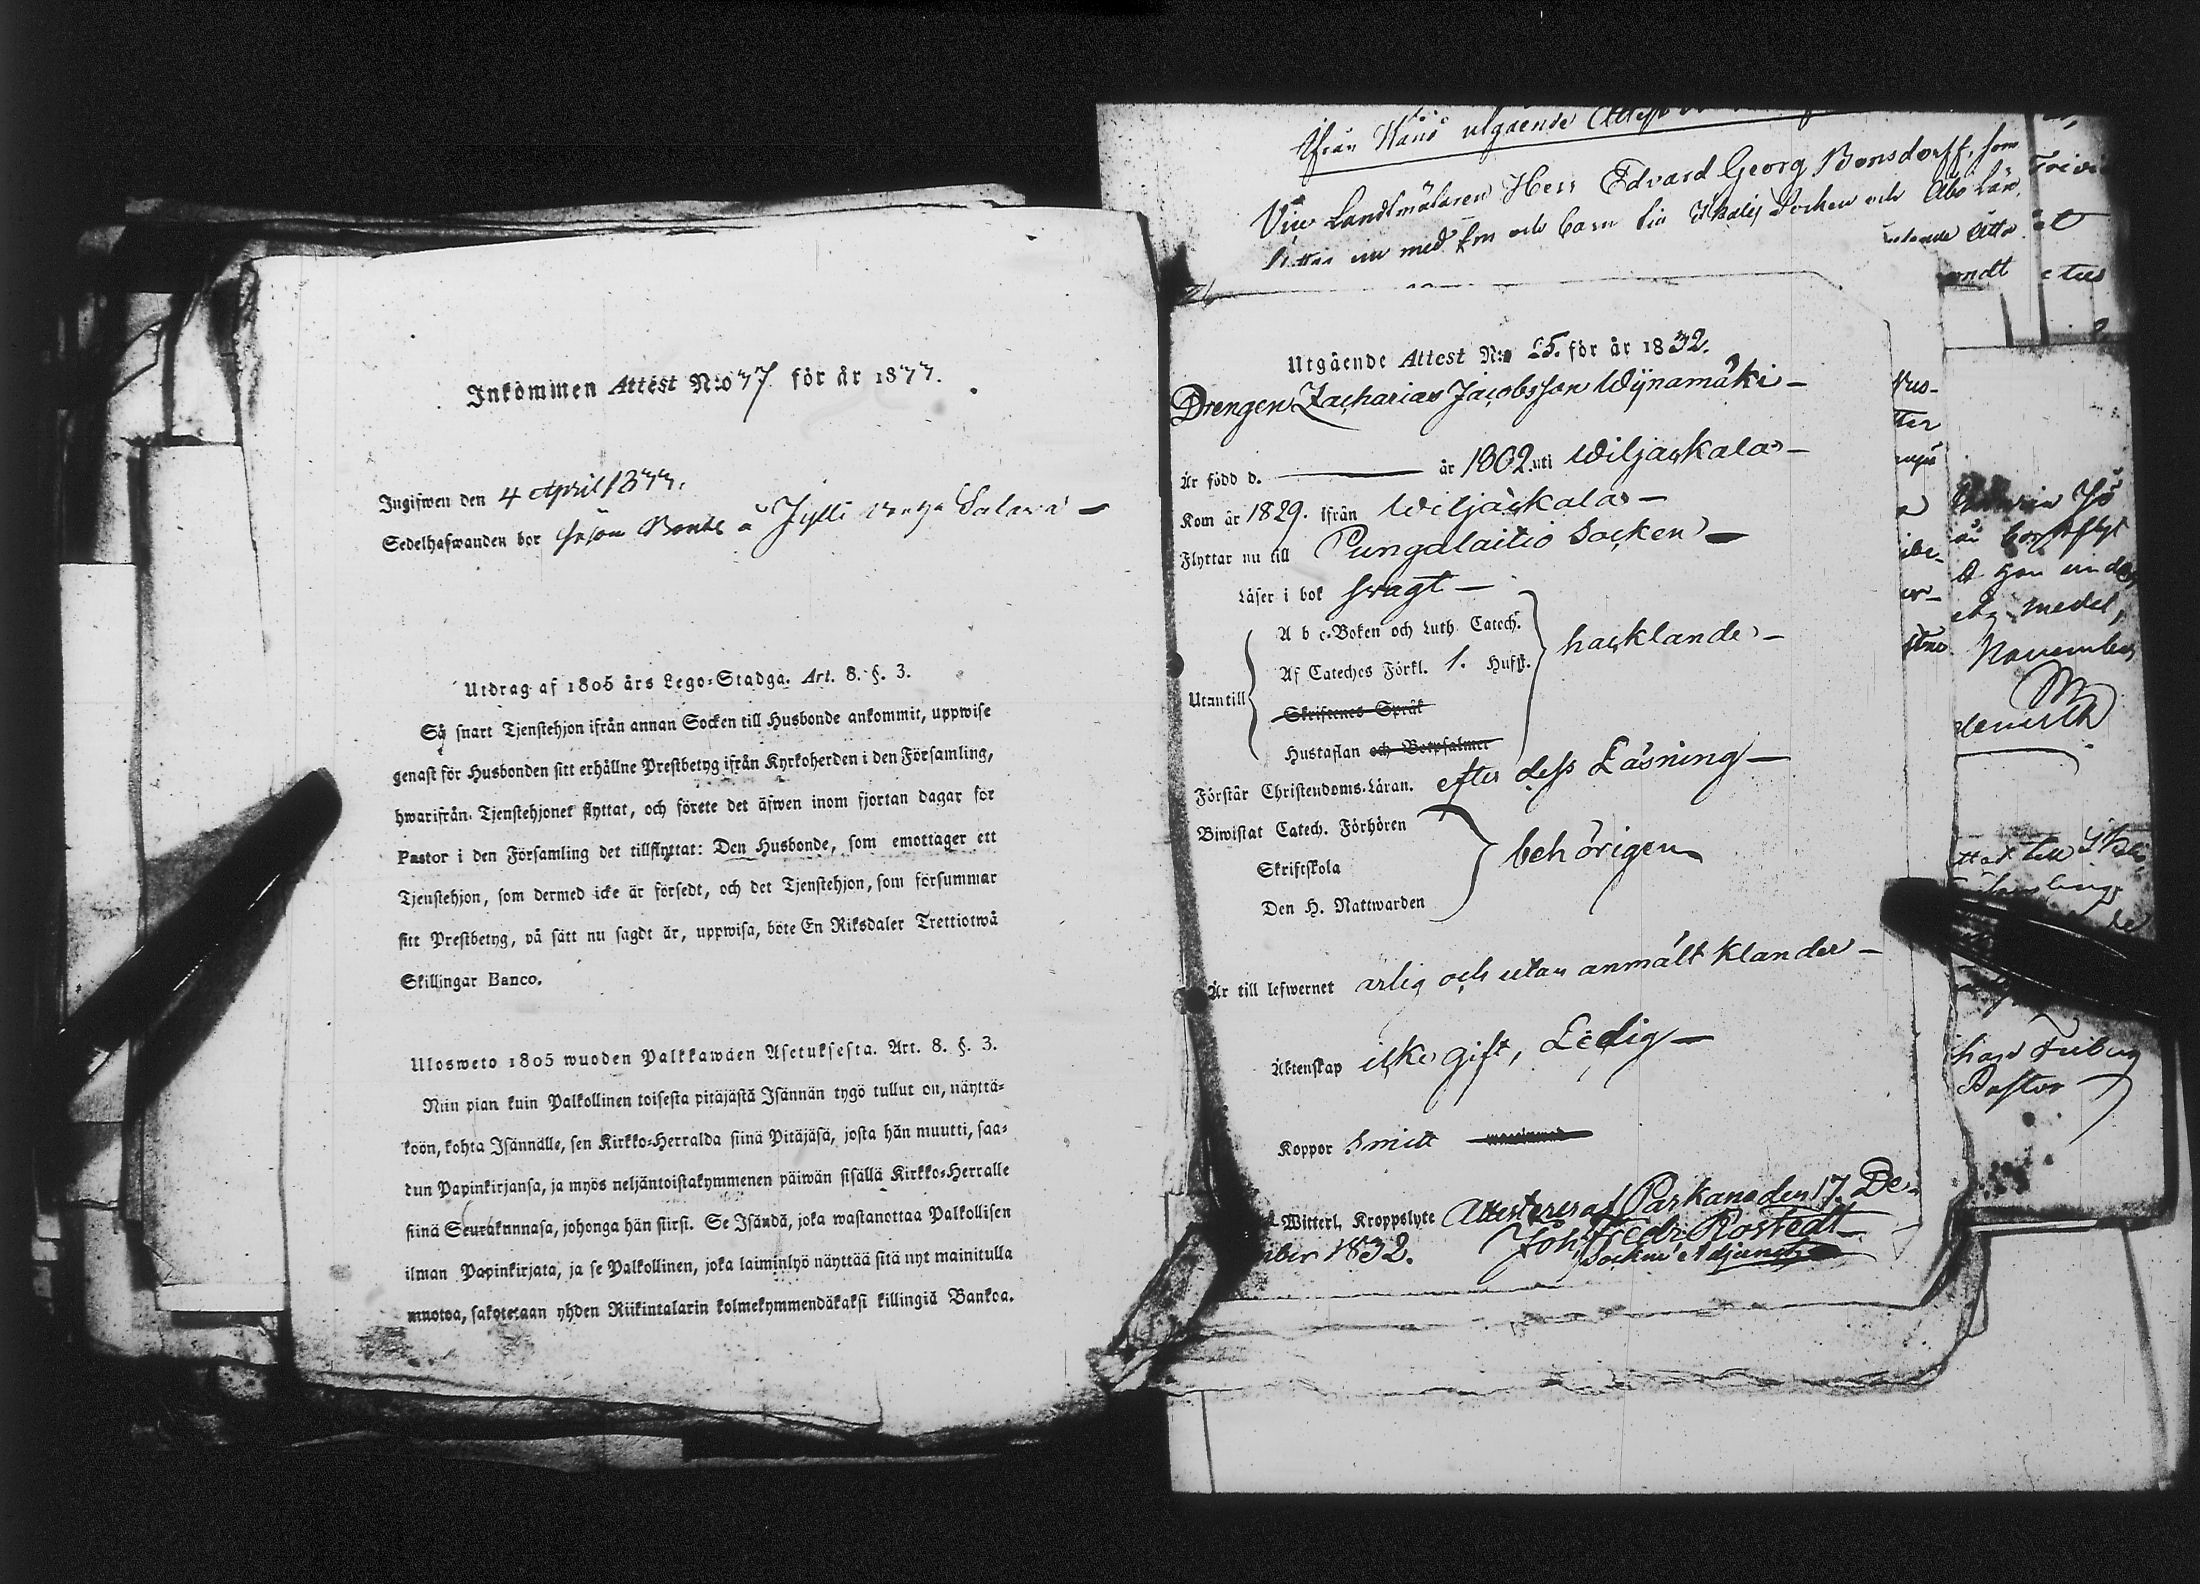 Inkommen Attest N:o 77 för år 1833.
Ingifwen den 4 April 1833.
Sedelhafwanden bor hos Bonde å Jylli
Utdrag af 1805 års Lego-Stadga. Art. 8. §. 3.
Så snart Tjenstehjon ifrån annan Socken till Husbonde ankommit, uppwise
genast för Husbonden sitt erhållne Prestbetyg ifrån Kyrkoherden i den Församling,
hwarifrån Tjenstehjonet flyttat, och förete det äfwen inom fjortan dagar för
Pastor i den Församling det tillflyttat: Den Husbonde, som emottager ett
Tjenstehjon, som dermed icke är försedt, och det Tjenstehjon, som försummar
sitt Prestbetyg, på sätt nu sagdt är, uppwisa, böte En Riksdaler Trettiotwå
Skillingar Banco.
Ulosweto 1805 wuoden Palkkawäen Asetuksesta. Art. 8. §. 3.
Niin pian kuin Palkollinen toisesta pitäjästä Isännän tygö tullut on, näyttä-
köön, kohta Isännälle, sen Kirkko-Herralda siinä Pitäjäsä, josta hän muutti, saa-
dun Papinkirjansa, ja myös neljäntoistakymmenen päiwän sisällä Kirkko-Herralle
siinä Seurakunnasa, johonga hän siirsi. Se Isändä, joka wastanottaa Palkollisen
ilman Papinkirjata, ja se Palkollinen, joka laiminlyö näyttää sitä nyt mainitulla
muotoa, sakotetaan yhden Riikintalarin kolmekymmendäkaksi killingiä Bankoa.
ifrån utgående
Vice Landtmätaren Herr Edvard Georg Bonsdorff, som
flyttar nu med fru och barn till Ikalis Socken och Åbo Län,
Utgående Attest N:o 25. för år 1832.
Drengen Zacharias Jacobsson Wijnamäki
Är född d. — år 1802. uti Wiljackala
Kom år 1829. ifrån Wiljackala
Flyttar nu till Pungalaitio Socken
Läser i bok swagt
A b c-Boken och Luth. Catech.
Af Cateches Förkl. 1. Hufst.
hacklande
Utantill
Skriftenes Språk
Hustaflan och Botpsalmer
Förstår Christendoms-Läran. efter dess Läsning
Biwistat Catech. Förhören
Skriftskola
behörigen
Den H. Nattwarden
Är till lefwernet ärlig och utan anmält klander
Äktenskap icke gift, Ledig
Koppor
Witterl. Kroppslyte Attesteras af Parkano den 17. De-
mber 1832. Joh. Fredr. Rostedt
Sockne Adjunct
November
Pastor